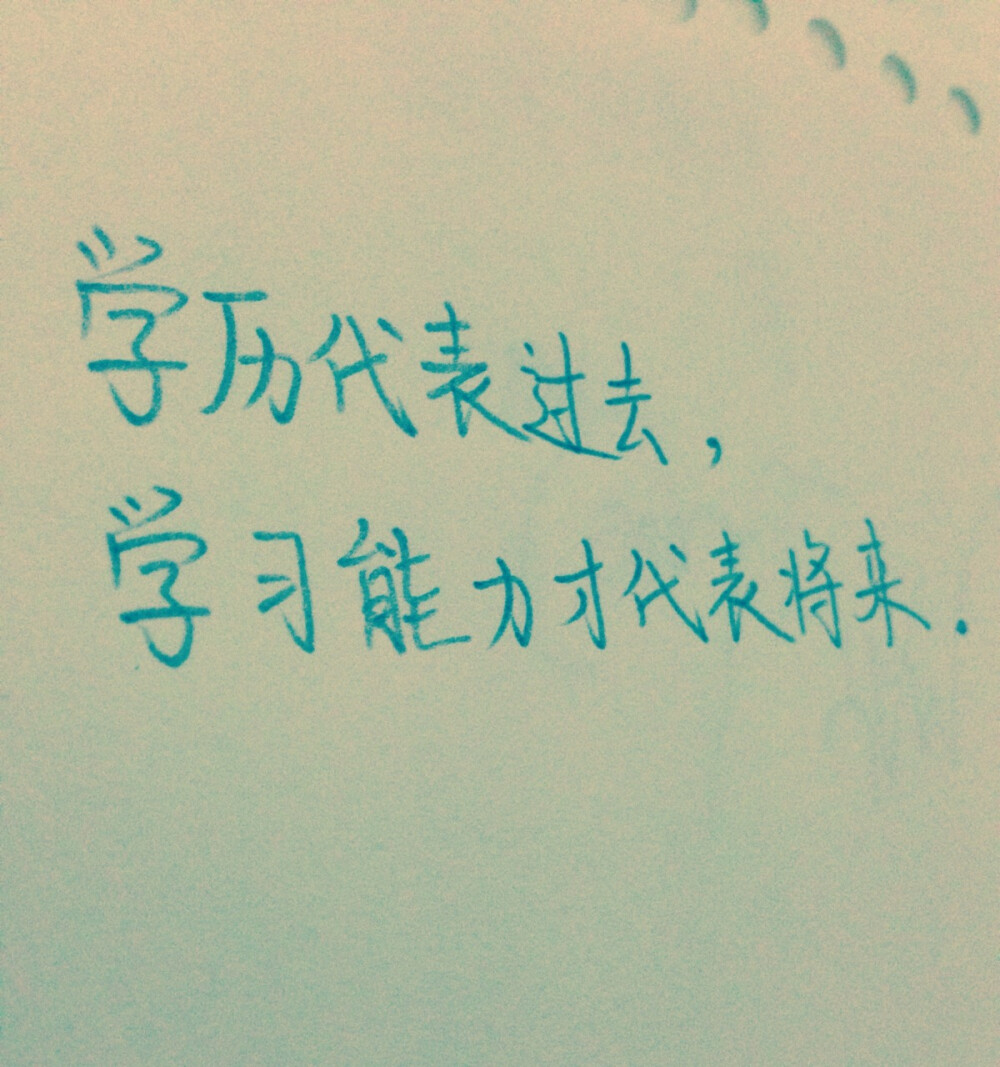 学历代表过去,
学习能力才代表将来.